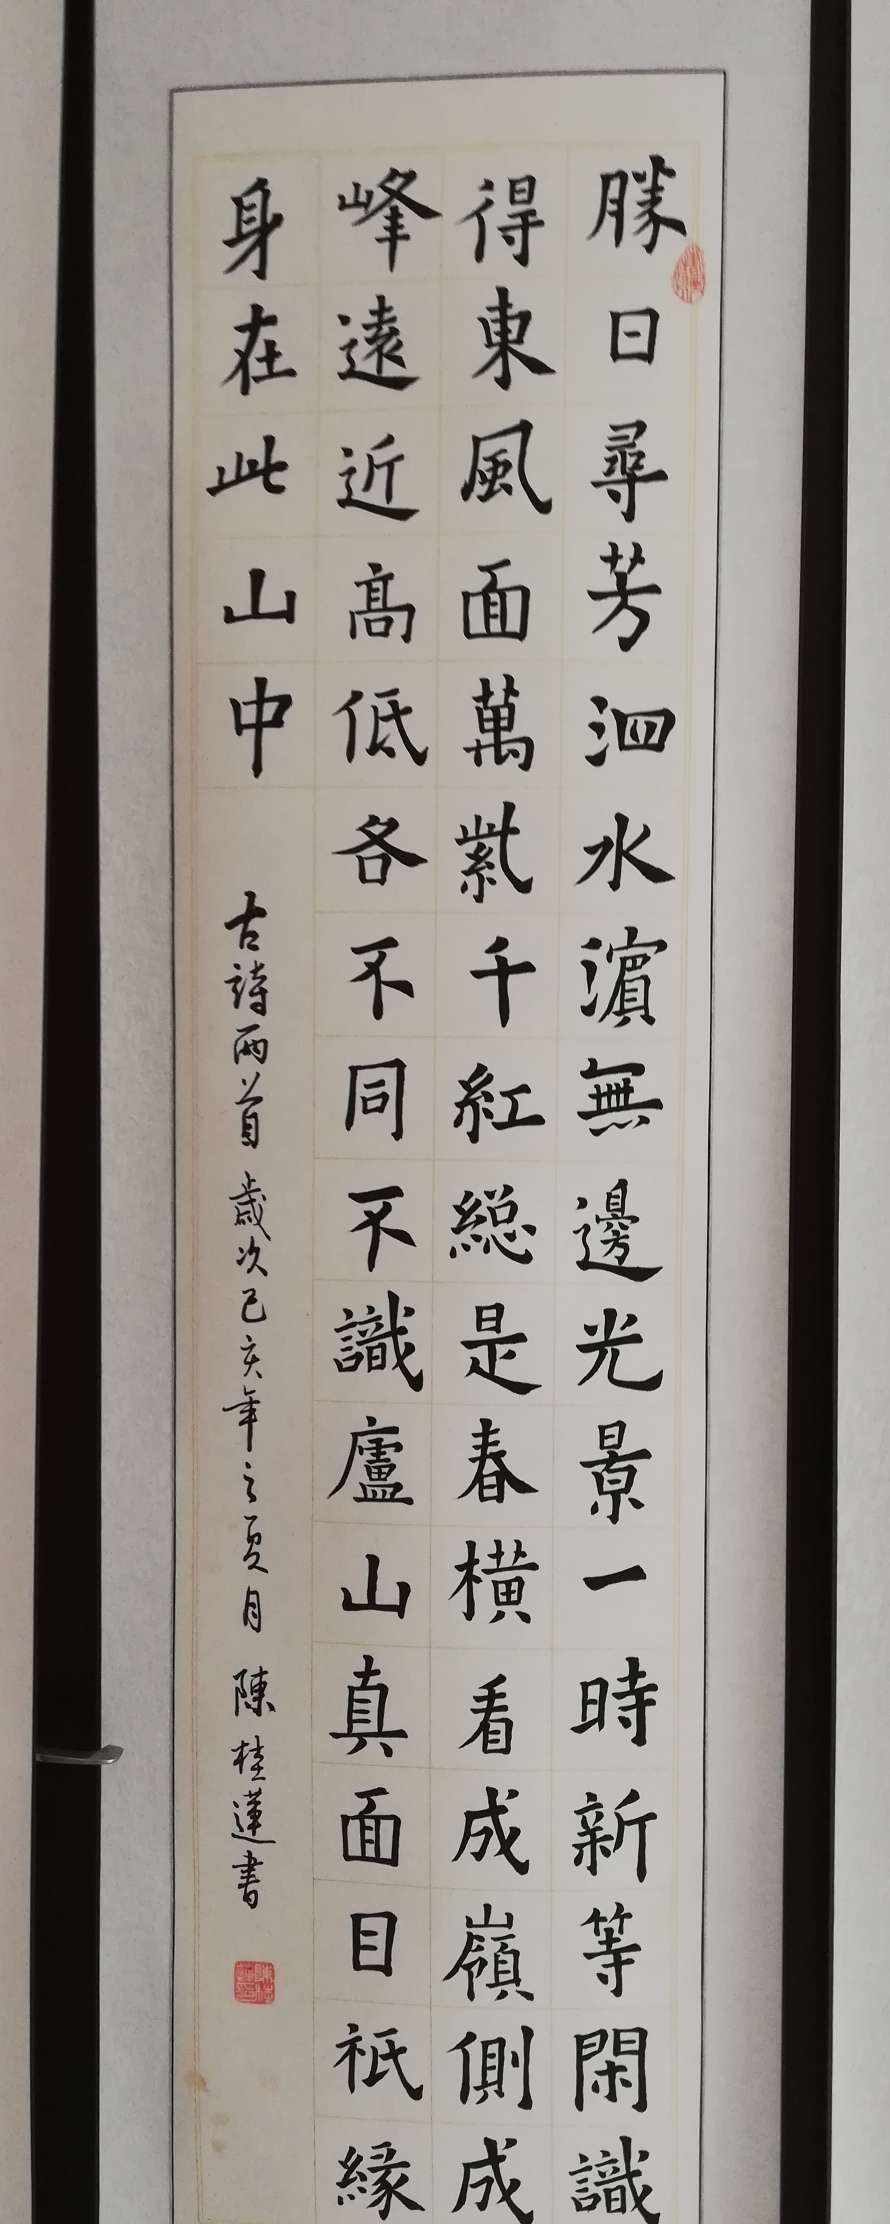 勝日尋芳泗水濱無邊光景一時新等閑識
得東風面萬紫千紅総是春橫看成嶺側成
峰遠近高低各不同不識廬山真面目祇緣
身在此山中
古詩兩首 歲次己亥年之夏月 陳桂蓮書